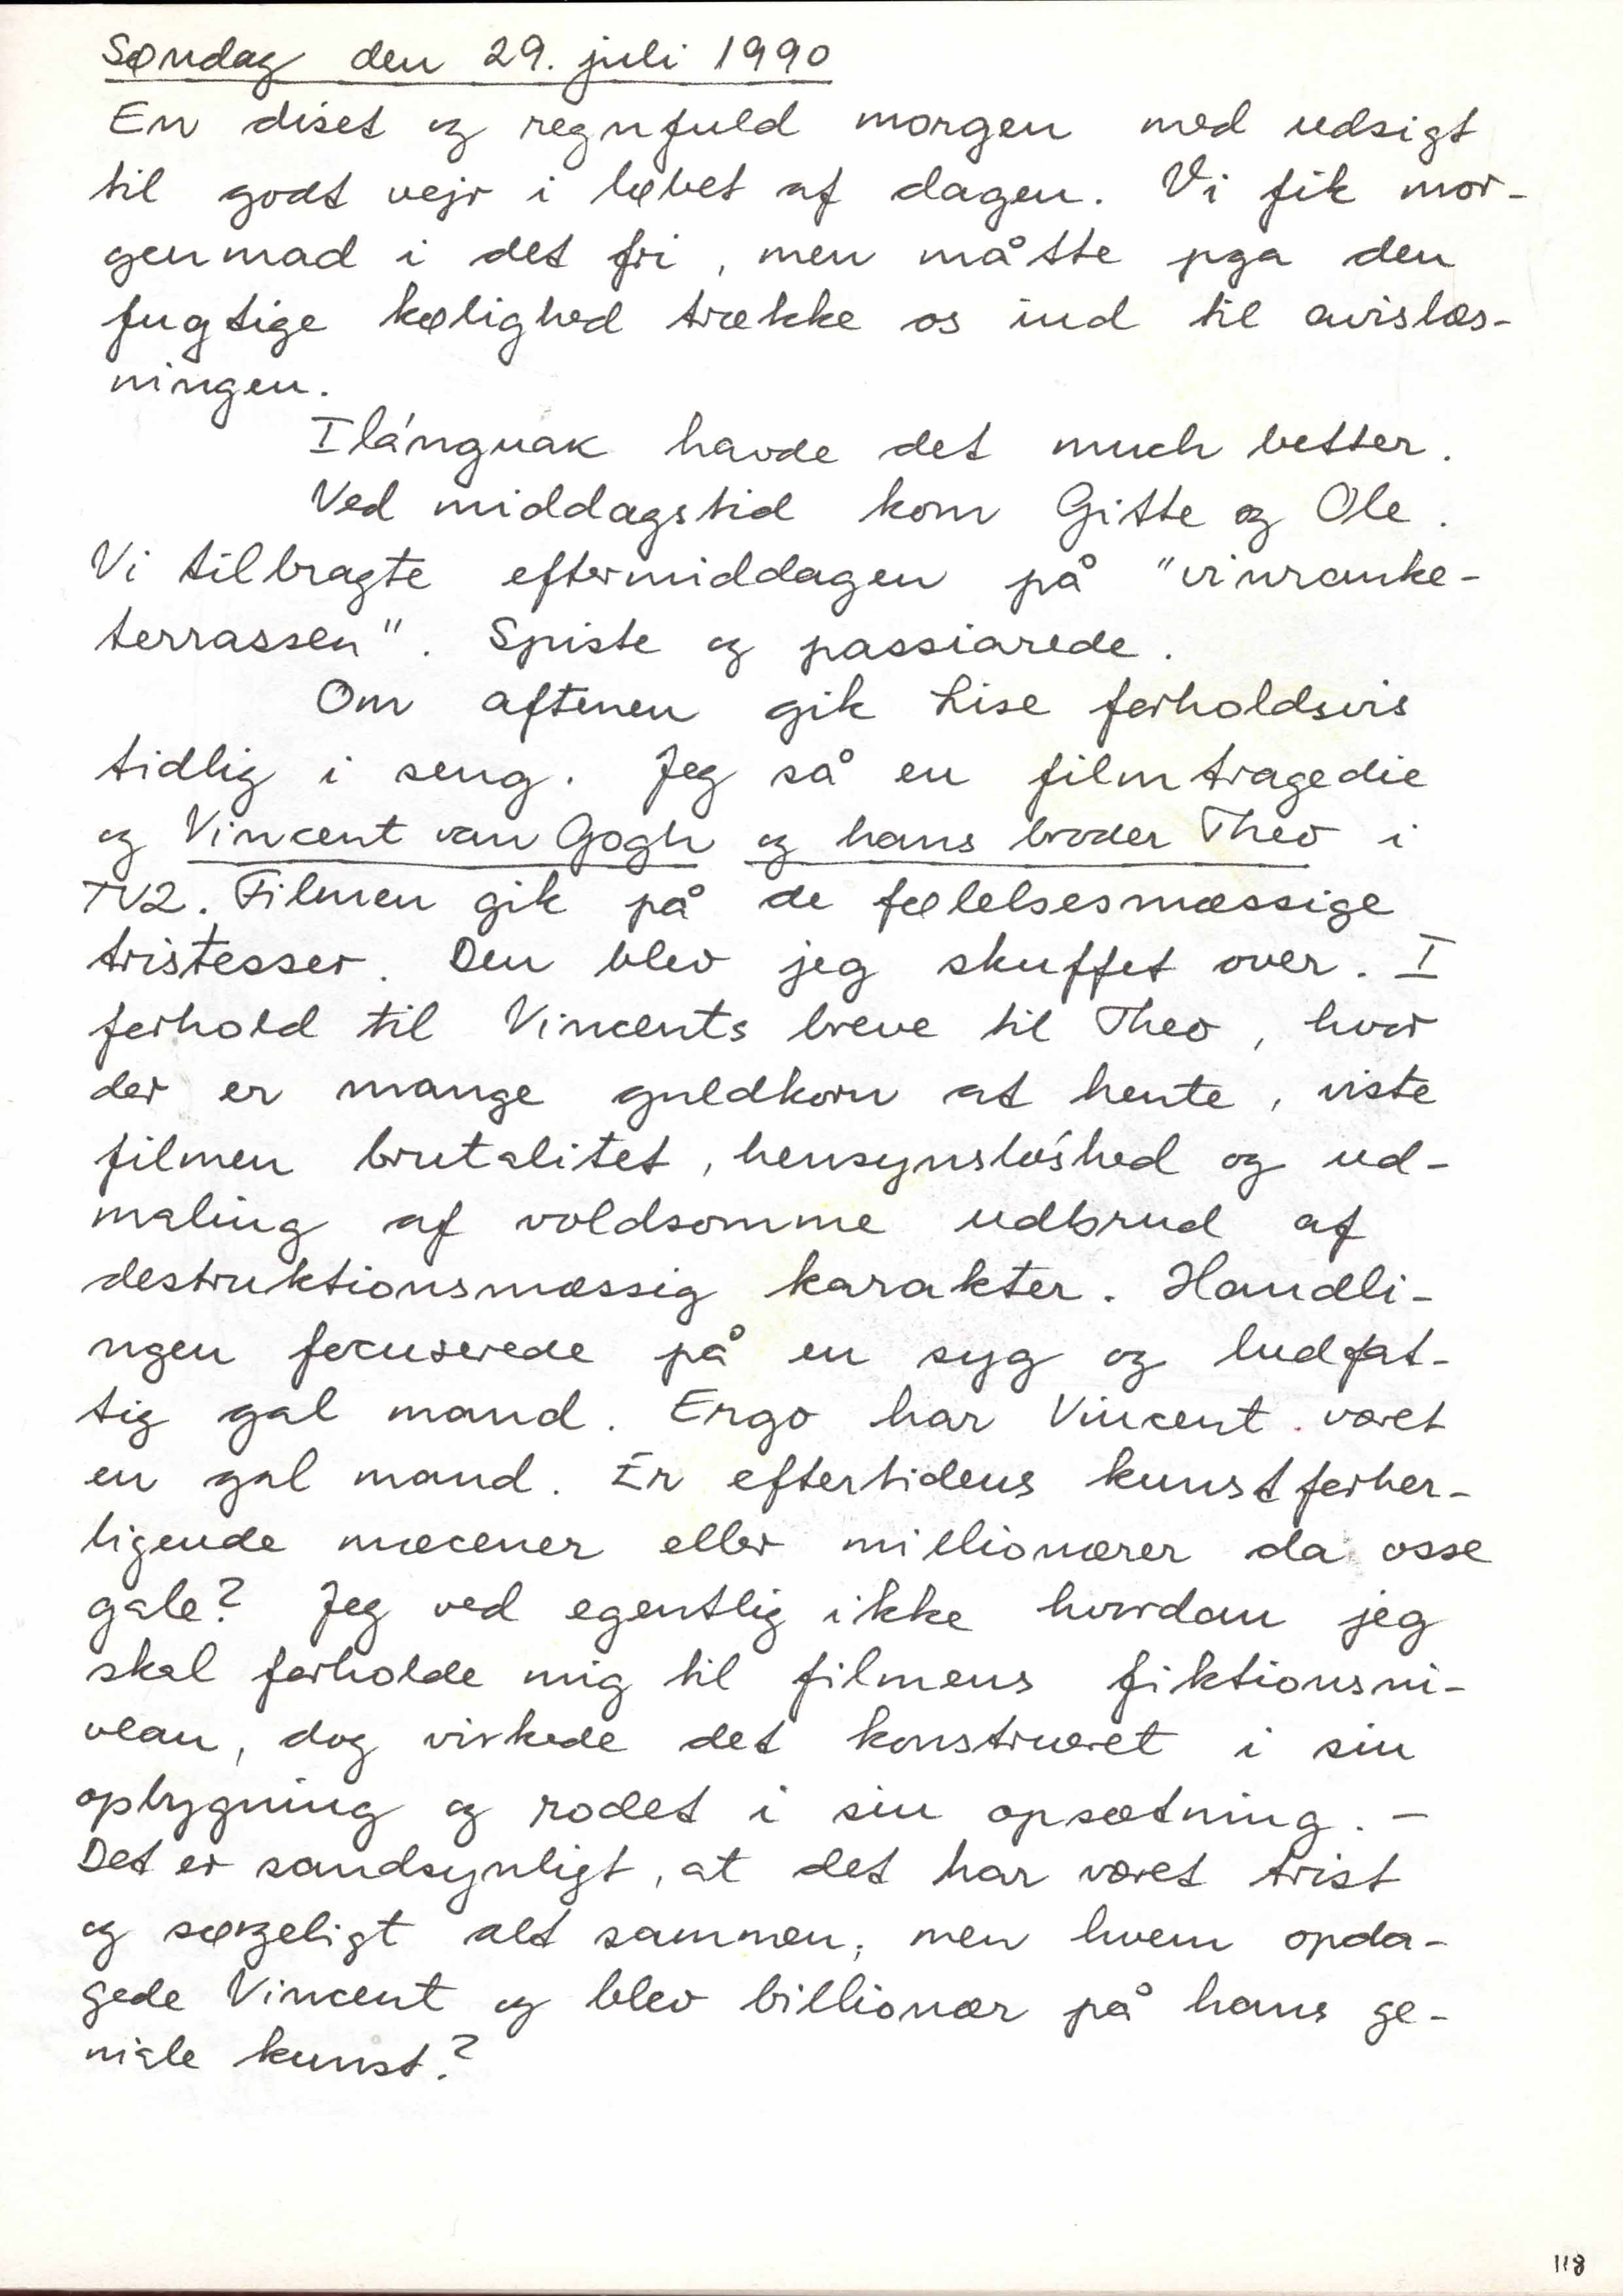 Søndag den 29. juli 1990
En diset og regnfuld morgen med udsigt
til godt vejr i løbet af dagen. Vi fik mor-
genmad i det fri, men måtte pga den
fugtige kølighed trække os ind til avislæs-
ningen.
Ilánguak havde det much better.
Ved middagstid kom Gitte og Ole.
Vi tilbragte eftermiddagen på "vinranke-
terrassen". Spiste og passiarede.
Om aftenen gik Lise forholdsvis
tidlig i seng. Jeg så en filmtragedie
og Vincent van Gogh og hans broder Theo i
TV2. Filmen gik på de følelsesmæssige
tristesser. Den blev jeg skuffet over. I
forhold til Vincents breve til Theo, hvor
der er mange guldkorn at hente, viste
filmen brutalitet, hensynsløshed og ud-
maling af voldsomme udbrud af
destruktionsmæssig karakter. Handli-
ngen focuserede på en syg og ludfat-
tig gal mand. Ergo har Vincent været
en gal mand. Er eftertidens kunstforher-
ligende mæcener eller millionærer da osse
gale? Jeg ved egentlig ikke hvordan jeg
skal forholde mig til filmens fiktionsni-
veau, dog virkede det konstrueret i sin
opbygning og rodet i sin opsætning. –
Det er sandsynligt, at det har været trist
og sørgeligt alt sammen, men hvem opda-
gede Vincent og blev billionær på hans ge-
niale kunst?
118